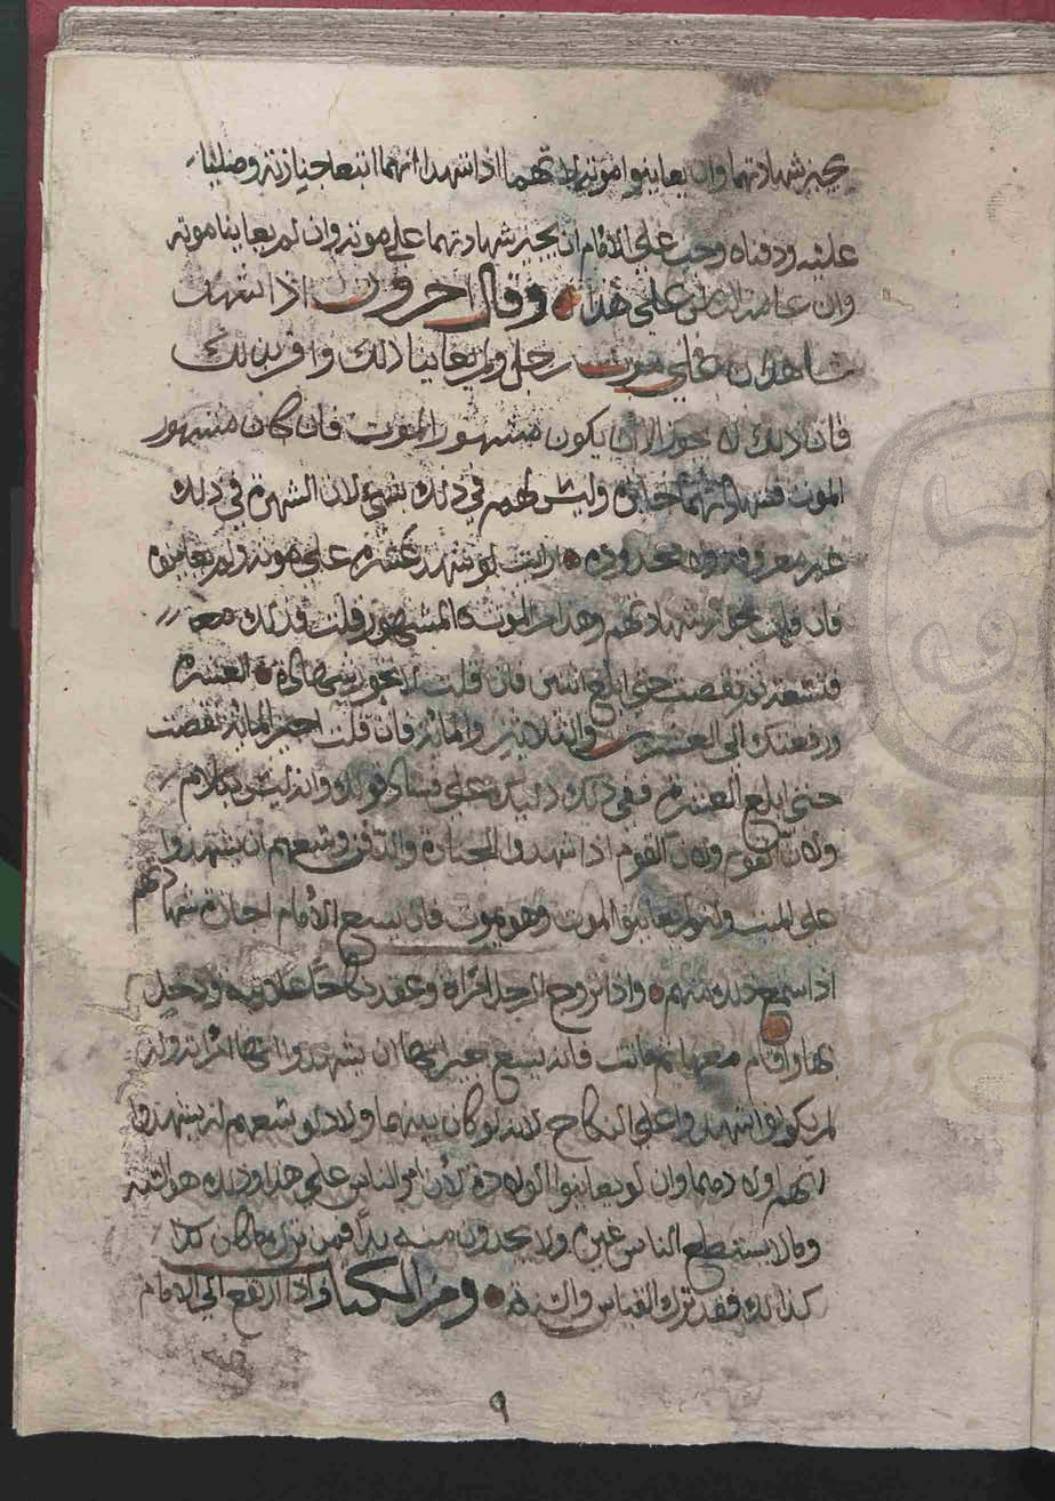 يجيز شهادتهما وان لم يعاينوا موته لانهما اذا شهدا انهما اتبعا جنازته وصليا
عليه ودفناه وجب على الامام ان يجيز شهادتهما على موته وان لم يعاينا موته
وان عامة الناس على هذا وقال اخرون اذا شهد
شاهدان على موت رجل ولم يعاينا ذلك واقر بذلك
فان ذلك لا يجوز الا ان يكون مشهور الموت فان كان مشهور
الموت فشهادتهما جائزة وليس لهم في ذلك شيء لان الشهرة في ذلك
غير معروفة ولا محدودة ارايت لو شهد عشرة على موته ولم يعاينوه
فان قلت تجوز شهادتهم وهذا من الموت المشهور قلت فذلك
فتسعة ثم نقصت حتى ابلغ اثنين فان قلت لا تجوز العشرة
ورفعتك الى العشرين والثلاثين والمائة فان قلت اجيز المائة نقصت
حتى ابلغ العشرة ففي ذلك دليل على فساد قولك وانه ليس بكلام
ولان القوم اذا شهدوا الجنازة والدفن وسعهم ان يشهدوا
على الميت وان لم يعاينوا الموت وهو يموت فان يسع الامام اجازة شهادتهم
اذا سمع ذلك منهم واذا تزوج الرجل امراة وعقد نكاحا علانية ودخل
بها واقام معها ثم ماتت فانه يسع جيرانها ان يشهدوا انها امراته وان
لم يكونوا شهدوا على النكاح لانه لو كان بينهما ولاد لوسعهم ان يشهدوا
انهم اولادهما وان لم يعاينوا الولادة لان امر الناس على هذا وذلك هو السنة
وما لا يستطيع الناس غيره ولا يجدون منه بدا فمن ترك ما كان
كذلك فقد ترك القياس والسنة ومن الكتاب واذا ارتفع الى الامام
٩